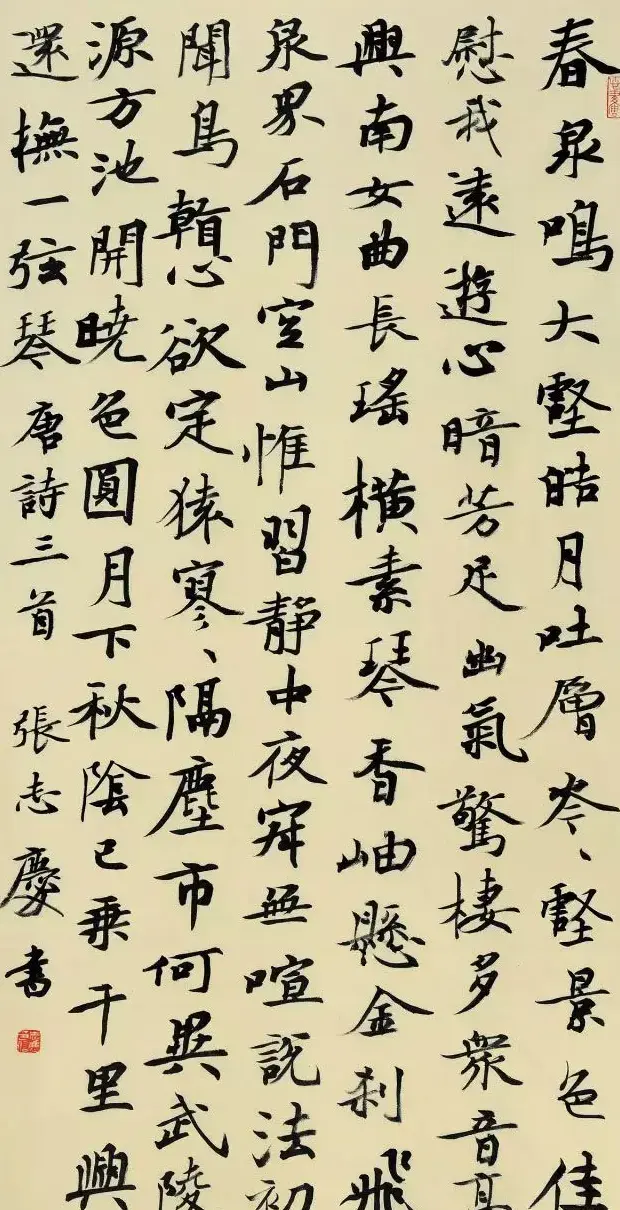 春泉鳴大壑皓月吐層岑々壑景色佳
慰我遠遊心暗芳足幽氣驚棲多衆音高
興南女曲長瑤橫素琴香岫懸金刹飛
泉界石門空山惟習靜中夜寂無喧說法初
聞鳥心欲定猿寥々隔塵市何異武陵
源方池開曉色圓月下秋陰已乘千里興
還撫一弦琴 唐詩三首 張志慶書